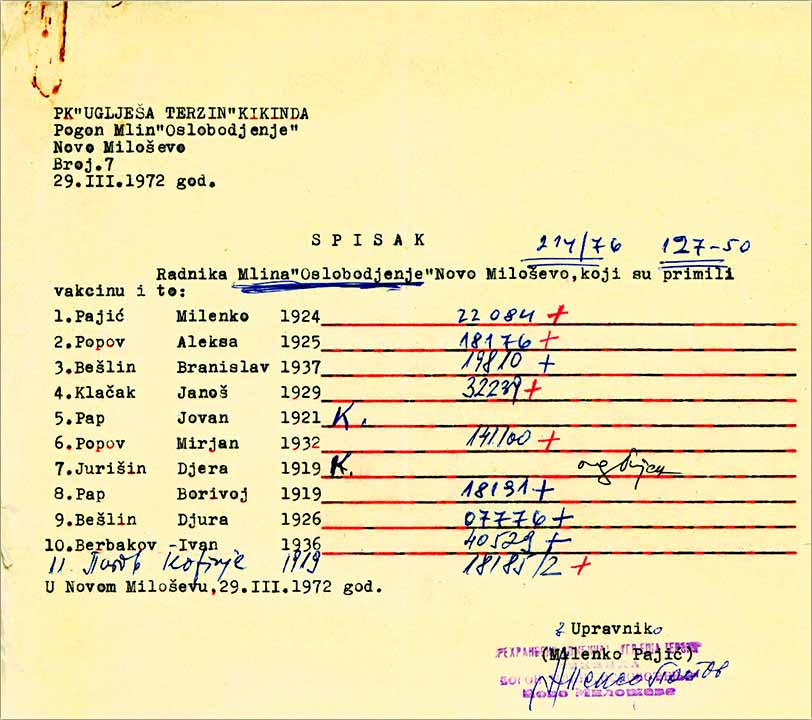 PK"UGLJEŠA TERZIN"KIKINDA
Pogon Mlin"Oslobodjenje"
Novo Miloševo
Broj.7
29.III.1972 god.
S P I S A K 214/76 127-50
Radnika Mlina"Oslobodjenje"Novo Miloševo,koji su primili
vakcinu i to:
1.Pajić Milenko 1924 22084 +
2.Popov Aleksa 1925 18176 +
3.Bešlin Branislav 1937 19810 +
4.Klačak Janoš 1929 32239 +
5.Pap Jovan 1921 K.
6.Popov Mirjan 1932 141100 +
7.Jurišin Djera 1919 K.
8.Pap Borivoj 1919 18131 +
9.Bešlin Djura 1926 07776 +
10.Berbakov -Ivan 1936 40529 +
11. 1919 18185/2 +
U Novom Miloševu,29.III.1972 god.
Upravnik
(Milenko Pajić)
Ново Милошево